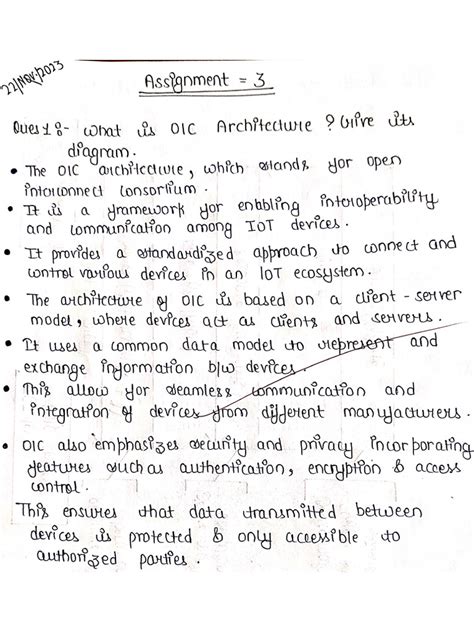 22/Nov/2023
Assignment = 3
Ques 1 :- What is OIC Architecture ? Give its
diagram.
• The OIC architecture, which stands for open
interconnect consortium.
• It is a framework for enabling interoperability
and communication among IoT devices.
• It provides a standardized approach to connect and
control various devices in an IoT ecosystem.
• The architecture of OIC is based on a client-server
model, where devices act as clients and servers.
• It uses a common data model to represent and
exchange information b/w devices.
• This allow for seamless communication and
integration of devices from different manufacturers.
• OIC also emphasizes security and privacy incorporating
features such as authentication, encryption & access
control.
This ensures that data transmitted between
devices is protected & only accessible to
authorized parties.